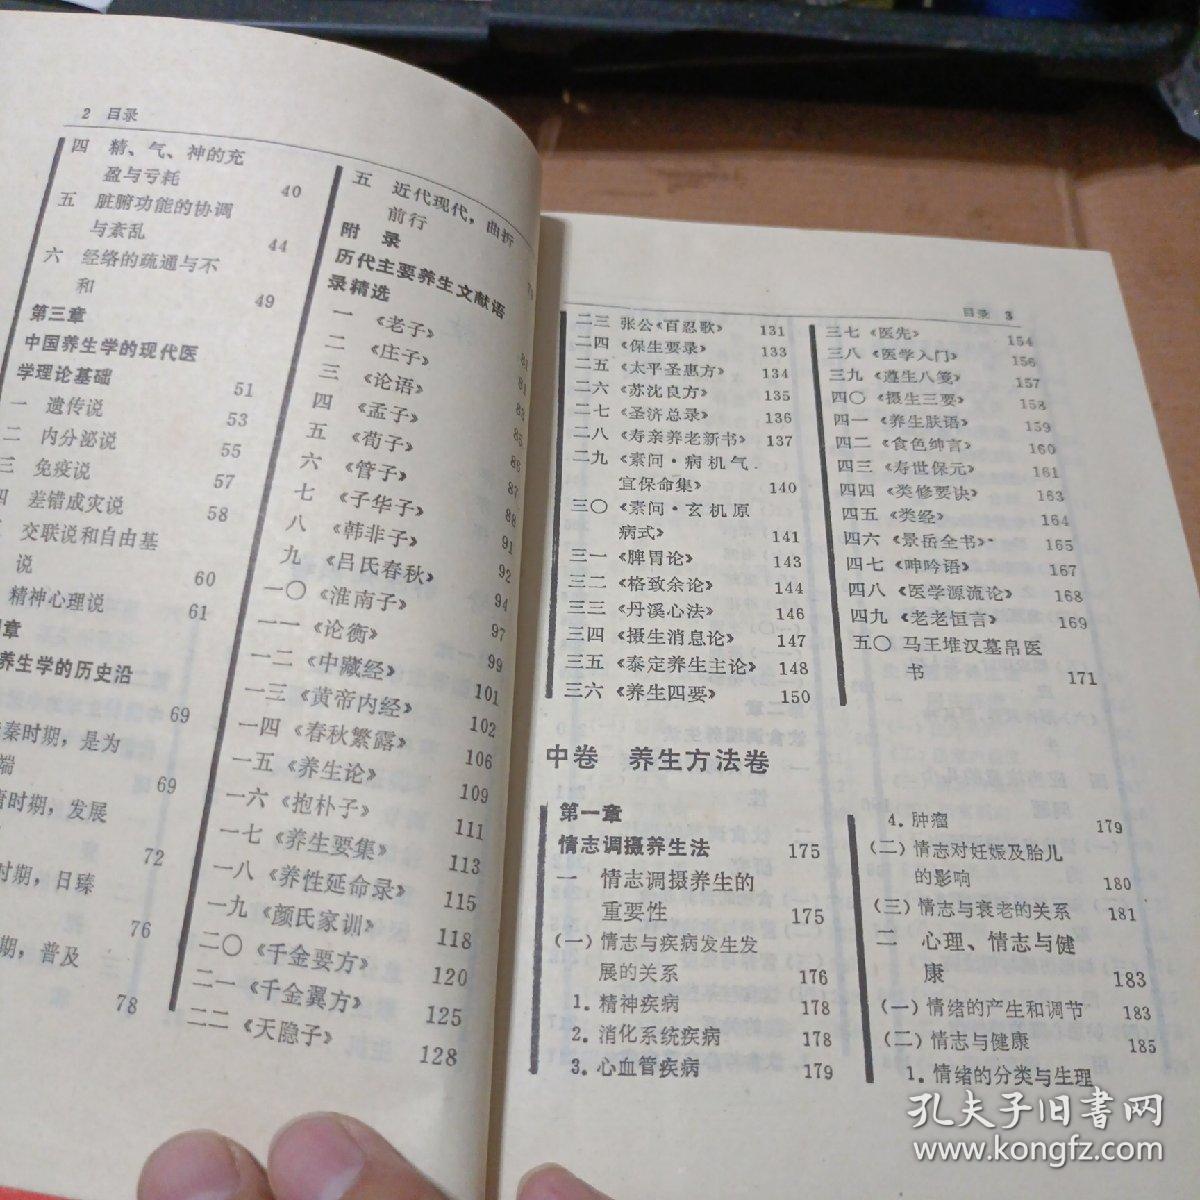 2 目录
四 精、气、神的充
盈与亏耗 40
五 脏腑功能的协调
与紊乱 44
六 经络的疏通与不
和 49
第三章
中国养生学的现代医
学理论基础 51
一 遗传说 53
二 内分泌说 55
三 免疫说 57
四 差错成灾说 58
交联说和自由基
说 60
精神心理说 61
章
养生学的历史沿
69
秦时期，是为
端 69
时期，发展
72
时期，日臻
76
期，普及
78
五 近代现代，曲折
前行
附 录
历代主要养生文献语
录精选
一 《老子》 81
二 《庄子》 81
三 《论语》
四 《孟子》
五 《荀子》
六 《管子》 87
七 《子华子》 88
八 《韩非子》 91
九 《吕氏春秋》 92
一〇 《淮南子》 94
一一 《论衡》 97
一二 《中藏经》 99
一三 《黄帝内经》 101
一四 《春秋繁露》 102
一五 《养生论》 106
一六 《抱朴子》 109
一七 《养生要集》 111
一八 《养性延命录》 113
一九 《颜氏家训》 115
二〇 《千金要方》 118
二一 《千金翼方》 120
二二 《天隐子》 125
128
目录 3
二三 张公《百忍歌》 131
二四 《保生要录》 133
二五 《太平圣惠方》 134
二六 《苏沈良方》 135
二七 《圣济总录》 136
二八 《寿亲养老新书》 137
二九 《素问·病机气
宜保命集》 140
三〇 《素问·玄机原
病式》 141
三一 《脾胃论》 143
三二 《格致余论》 144
三三 《丹溪心法》 146
三四 《摄生消息论》 147
三五 《泰定养生主论》 148
三六 《养生四要》 150
三七 《医先》 154
三八 《医学入门》 156
三九 《遵生八笺》 157
四〇 《摄生三要》 158
四一 《养生肤语》 159
四二 《食色绅言》 160
四三 《寿世保元》 161
四四 《类修要诀》 163
四五 《类经》 164
四六 《景岳全书》 165
四七 《呻吟语》 167
四八 《医学源流论》 168
四九 《老老恒言》 169
五〇 马王堆汉墓帛医
书 171
中卷 养生方法卷
第一章
情志调摄养生法 175
一 情志调摄养生的
重要性 175
(一)情志与疾病发生发
展的关系 176
1.精神疾病 178
2.消化系统疾病 178
3.心血管疾病 179
4.肿瘤 179
(二)情志对妊娠及胎儿
的影响 180
(三)情志与衰老的关系 181
二 心理、情志与健
康 183
(一)情绪的产生和调节 183
(二)情志与健康 185
1.情绪的分类与生理
孔夫子旧书网
www.kongfz.com